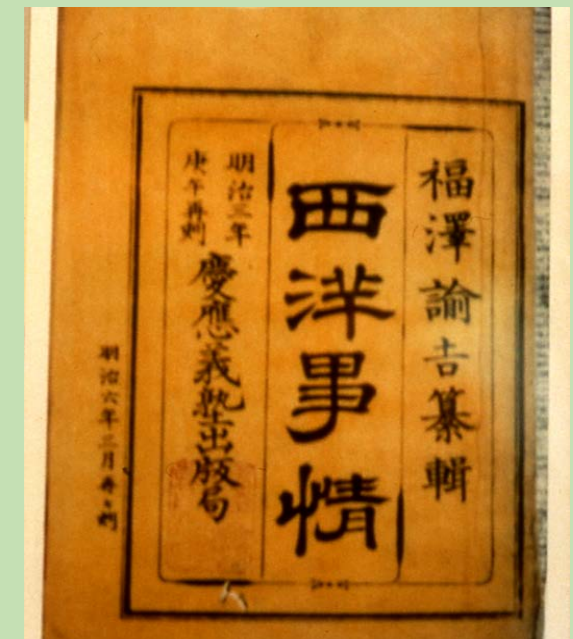 福澤諭吉纂輯
西洋事情
明治三年
庚午再刻
慶應義塾出版局
明治六年三月再々刻